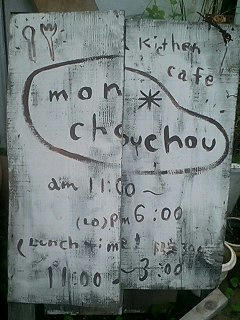 Kitchen
cafe
mon *
chouchou
am 11:00 ~
(LO)pm 6:00
(Lunch time!
11:00 ~ 3:00